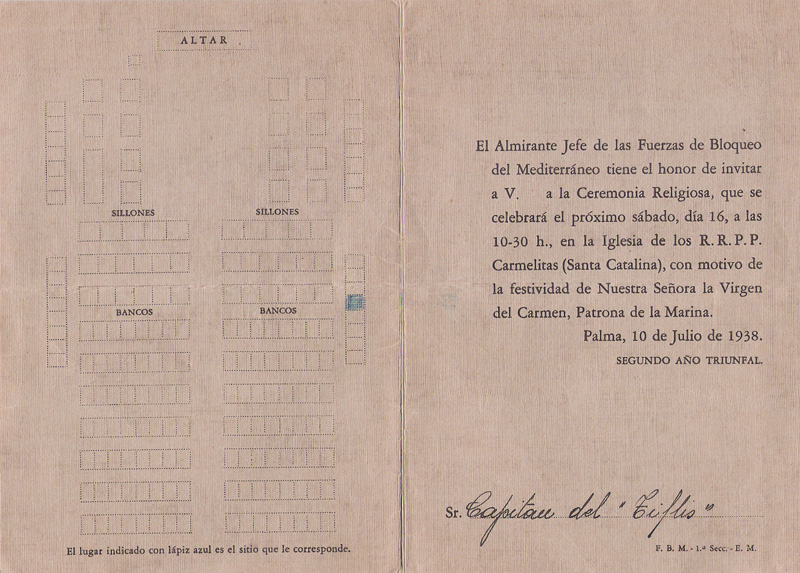 ALTAR
SILLONES
SILLONES
BANCOS
BANCOS
El lugar indicado con lápiz azul es el sitio que le corresponde.
El Almirante Jefe de las Fuerzas de Bloqueo
del Mediterráneo tiene el honor de invitar
a V. a la Ceremonia Religiosa, que se
celebrará el próximo sábado, día 16, a las
10-30 h., en la Iglesia de los R. R. P. P.
Carmelitas (Santa Catalina), con motivo de
la festividad de Nuestra Señora la Virgen
del Carmen, Patrona de la Marina.
Palma, 10 de Julio de 1938.
SEGUNDO AÑO TRIUNFAL.
Sr. Capitan del "Tiflis"
F. B. M. - 1.ª Secc. - E. M.